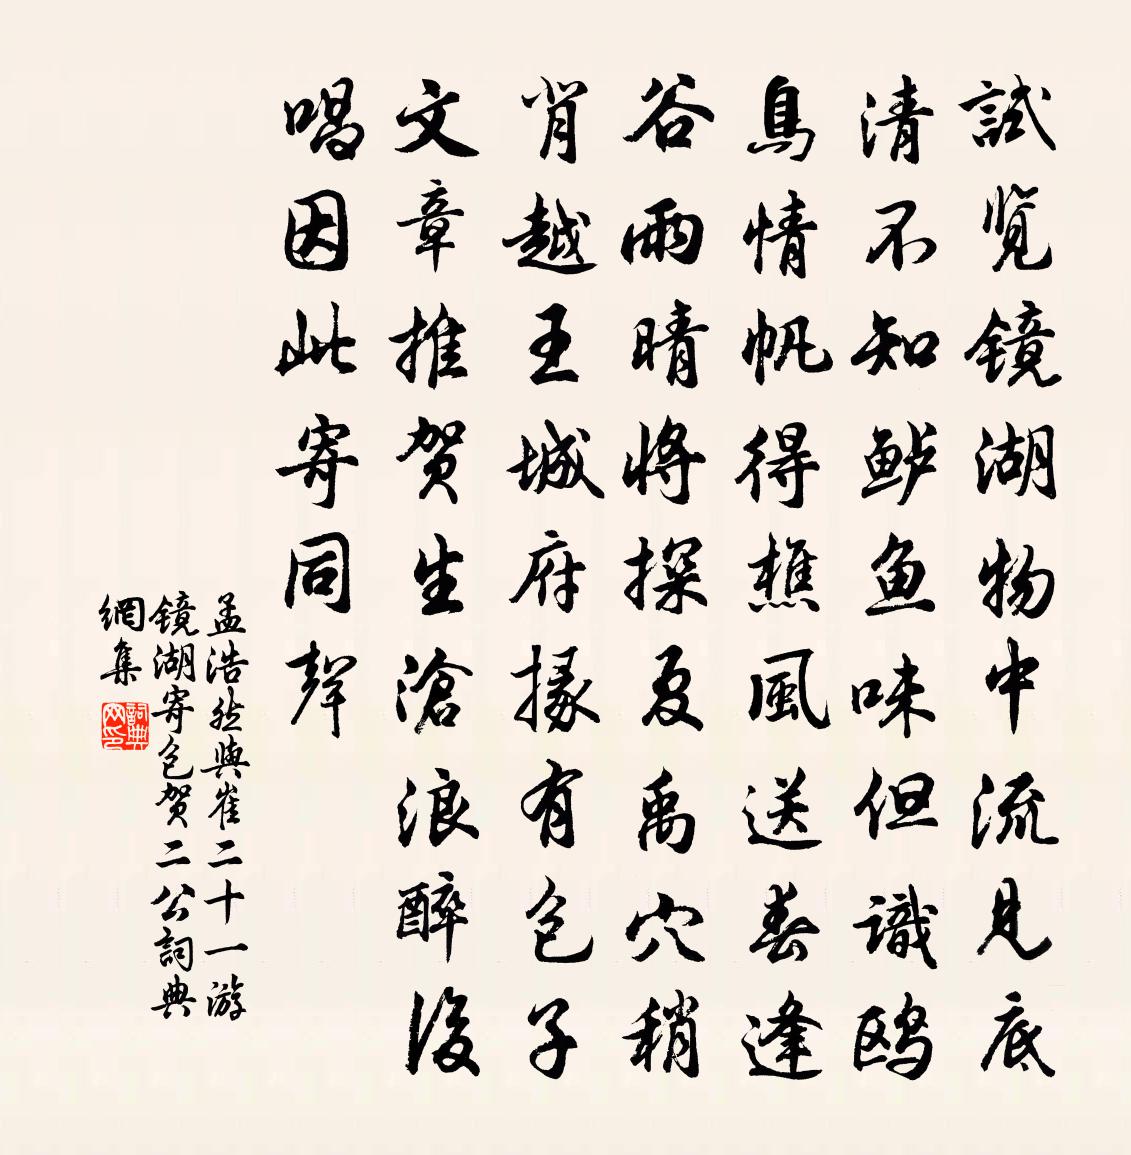 試览镜湖物中流見底
清不知鲈鱼味但識鸥
鳥情帆得樵風送春逢
谷雨晴將探夏禹穴稍
肖越王城府掾有包子
文章推贺生滄浪醉後
唱因此寄同聲
孟浩然與崔二十一游
镜湖寄包贺二公詞典
網集
詞典
网印